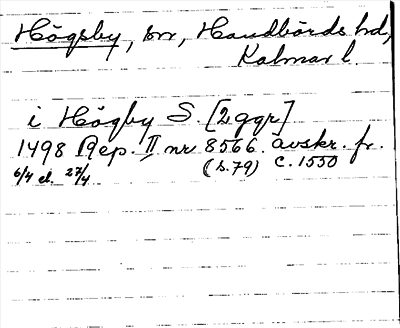 Högsby, sn, Handbörds hd,
Kalmar l.
i Högby S. [2 ggr]
1498 Rep. II nr 8566. avskr. fr.
6/4 el. 27/4 (s. 79) c. 1550